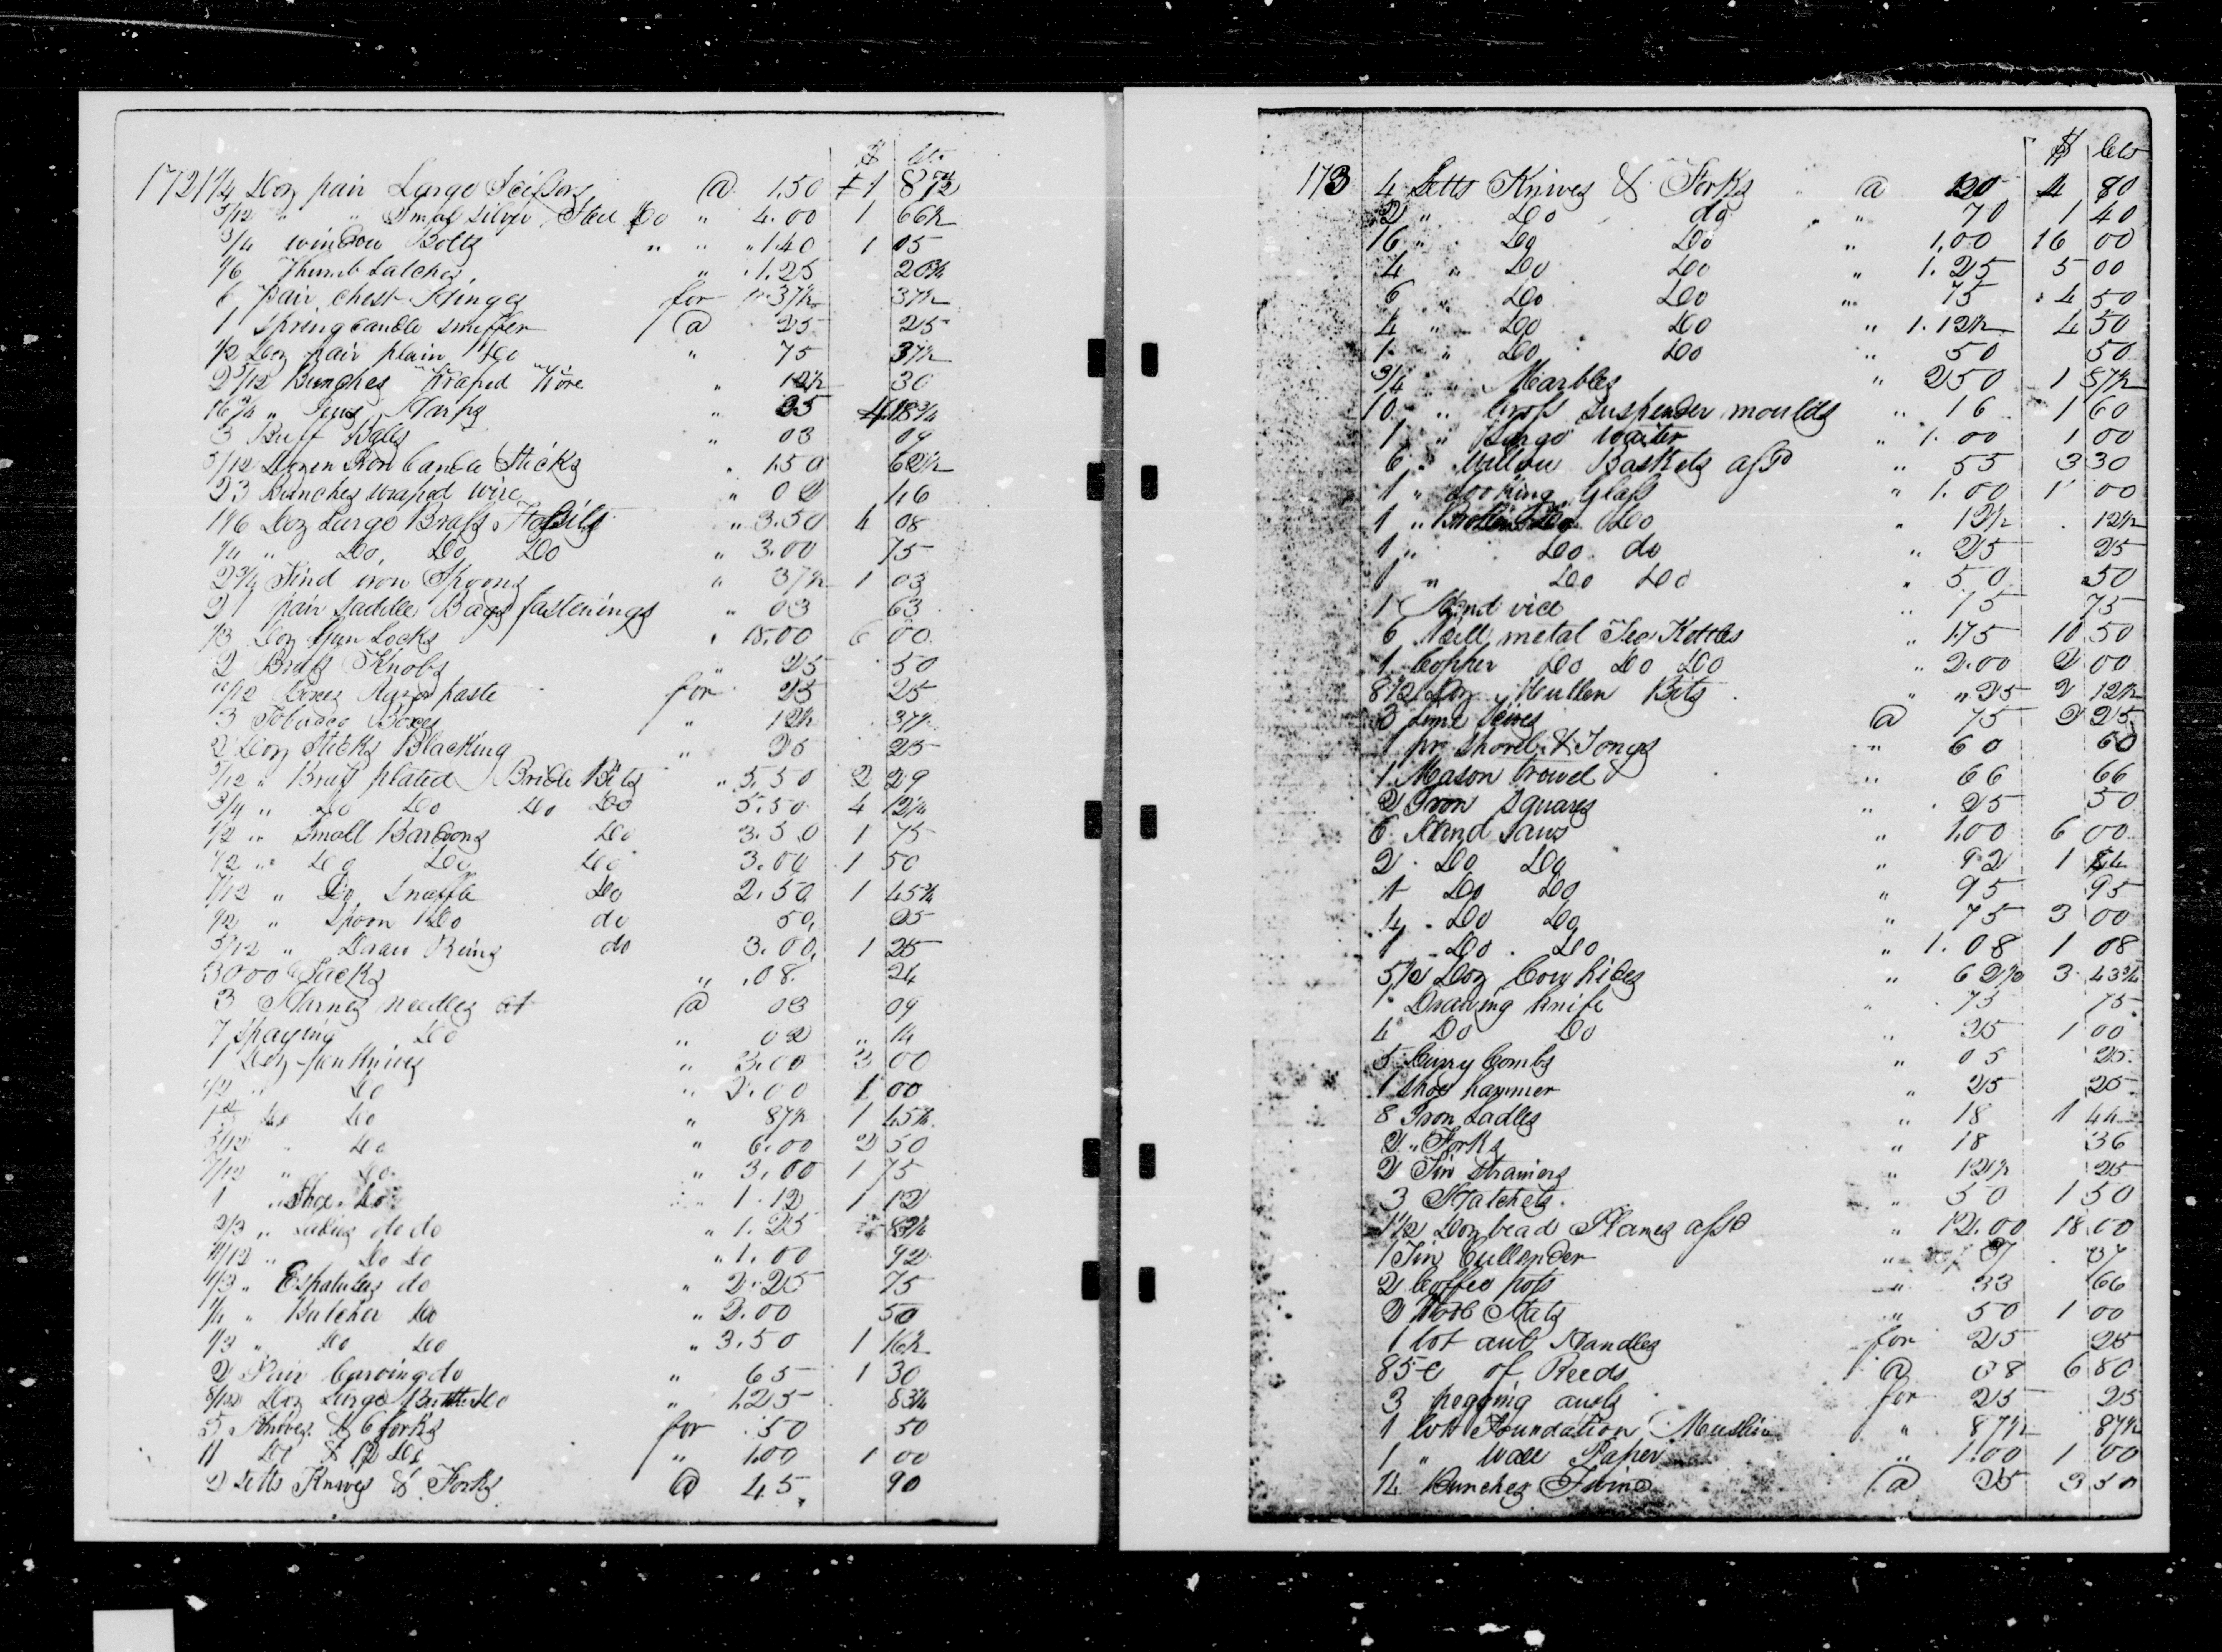 $ cts
172 1 1/4 Doz pair Large Scissors @ 1.50 1 87 1/2
5/12 " " Small Silver Steel Do " 4.00 1 66 1/2
3/4 window Bolts " " " 1.40 1 05
1/6 Thumb Latches " 1.25 20 3/4
6 pair chest Hinges for 37 1/2 37 1/2
1 Spring candle snuffer @ 25 25
1/2 Doz pair plain Do " 75 37 1/2
2 5/12 Bunches Wraped Wire " 12 1/2 30
16 3/4 " Jews Harps " 25 4 18 3/4
3 Buff Balls " 03 09
5/12 Dozen Iron Candle Sticks " 1.50 62 1/2
23 Bunches wraped wire " 02 46
1 1/6 Doz Large Brass " 3.50 4 08
1/4 " Do, Do, Do " 3.00 75
2 3/4 Tind iron Spoons " 37 1/2 1 03
21 pair saddle Bags fastenings " 03 63
1/3 Doz Gun Locks " 18.00 6 00
2 Brass Knobs " 25 50
11/12 Boxes Razor paste for 25 25
3 Tobacco Boxes " 12 1/2 37 1/2
2 Doz Sticks Blacking " 25 25
5/12 " Brass plated Bridle Bits " 5.50 2 29
3/4 " Do Do Do Do 5.50 4 12 1/2
1/2 " Small Do 3.50 1 75
1/2 " Do Do Do 3.00 1 50
7/12 " Do Snaffle Do 2.50 1 45 3/4
1/2 " Do do 50 25
5/12 " Draw Reins do 3.00 1 25
3000 Tacks " .08 24
3 Harness needles at @ 03 09
7 Spaying Do " 02 " 14
1 Doz penknives " 3.00 3 00
1/2 " Do " 2.00 1 00
Do Do " 87 1/2 1 45 3/4
5/12 " Do " 6.00 2 50
7/12 " Do " 3.00 1 75
1 " Shoe Do " 1.12 1 12
2/3 " do do " 1.25 83 1/4
11/12 " Do Do " 1.00 92
1/3 " Espatulas do " 2.25 75
1/4 " Butcher Do " 2.00 50
1/3 " Do Do " 3.50 1 16 1/2
2 Pair Carving do " 65 1 30
8/12 Doz Large Do " 1.25 83 1/4
5 Knives & 6 forks for 50 50
11 Do & 12 Do " 1.00 1 00
2 Setts Knives & Forks @ 45 90
$ cts
173 4 Setts Knives & Forks @ 1.20 4 80
2 " Do do " 70 1 40
16 " Do Do " 1.00 16 00
4 " Do Do " 1.25 5 00
6 " Do Do " 75 4 50
4 " Do Do " 1.12 1/2 4 50
1 " Do Do " 50 50
3/4 " Marbles " 250 1 87 1/2
10 " Gross suspender moulds " 16 1 60
1 " Large waiter " 1.00 1 00
6 " Willow Baskets assd " 55 3 30
1 " Looking Glass " 1.00 1 00
1 " Do " 12 1/2 12 1/2
1 " Do do " 25 25
1 " Do Do " 50 50
1 Hand vice " 75 75
6 metal Tea Kettles " 1.75 10 50
1 Copper Do Do Do " 2.00 2 00
8 1/2 Doz Bits " " 25 2 12 1/2
3 @ 75 2 25
1 pr shovel & Tongs " 60 60
1 Mason trowel " 66 66
2 Iron Squares " 25 50
6 Hand Saws " 1.00 6 00
2 Do Do " 92 1 84
1 Do Do " 95 95
4 Do Do " 75 3 00
1 Do Do " 1.08 1 08
5 1/2 Doz Cow hides " 62 1/2 3 43 3/4
1 Drawing knife " 75 75
4 Do Do " 25 1 00
5 Curry Combs " 05 25
1 Shoe hammer " 25 25
8 Iron Ladles " 18 1 44
2 " Forks " 18 36
2 Tin Strainers " 12 1/2 25
3 Hatchets " 50 1 50
1 1/2 Doz bead Planes assd " 12.00 18 00
1 Tin Cullender " 37 37
2 Coffee pots " 33 66
2 Wool Hats " 50 1 00
1 lot awl Handles for 25 25
85 of Reeds @ 08 6 80
3 pegging awls for 25 25
1 lot Foundation Muslin " 87 1/2 87 1/2
1 " Wall Paper " 1.00 1 00
14 Bunches Twine @ 25 3 50